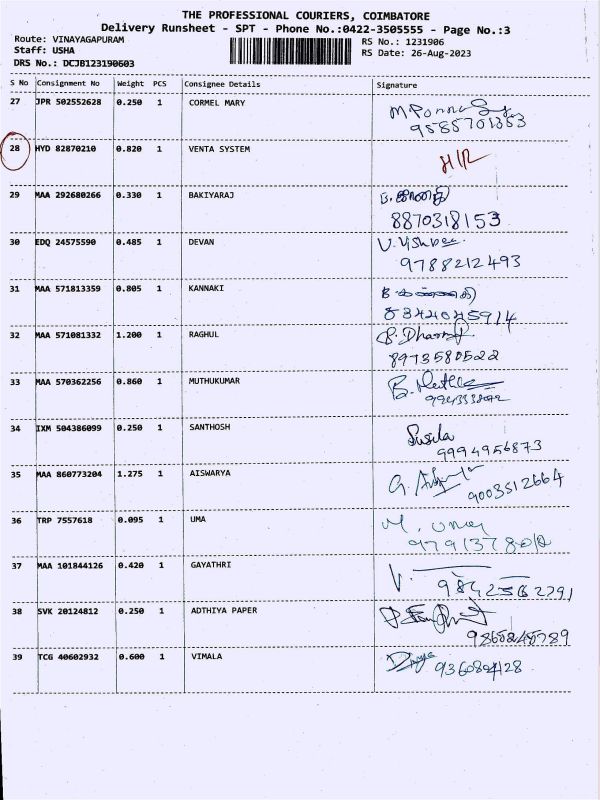 THE PROFESSIONAL COURIERS, COIMBATORE
Delivery Runsheet - SPT - Phone No.:0422-3505555 - Page No.:3
Route: VINAYAGAPURAM
RS No.: 1231906
Staff: USHA
RS Date: 26-Aug-2023
DRS No.: DCJB123190603
S No Consignment No Weight PCS Consignee Details Signature
27 JPR 502552628 0.250 1 CORMEL MARY
9585701353
28 HYD 82870210 0.820 1 VENTA SYSTEM
29 MAA 292680266 0.330 1 BAKIYARAJ
8870318153
30 EDQ 24575590 0.485 1 DEVAN
9788212493
31 MAA 571813359 0.805 1 KANNAKI
32 MAA 571081332 1.200 1 RAGHUL B. Dharnit
8973580522
33 MAA 570362256 0.860 1 MUTHUKUMAR
34 IXM 504386099 0.250 1 SANTHOSH Susila
9994956873
35 MAA 860773204 1.275 1 AISWARYA
9003512664
36 TRP 7557618 0.095 1 UMA M. Uma
37 MAA 101844126 0.420 1 GAYATHRI V.
38 SVK 20124812 0.250 1 ADTHIYA PAPER
39 TCG 40602932 0.600 1 VIMALA